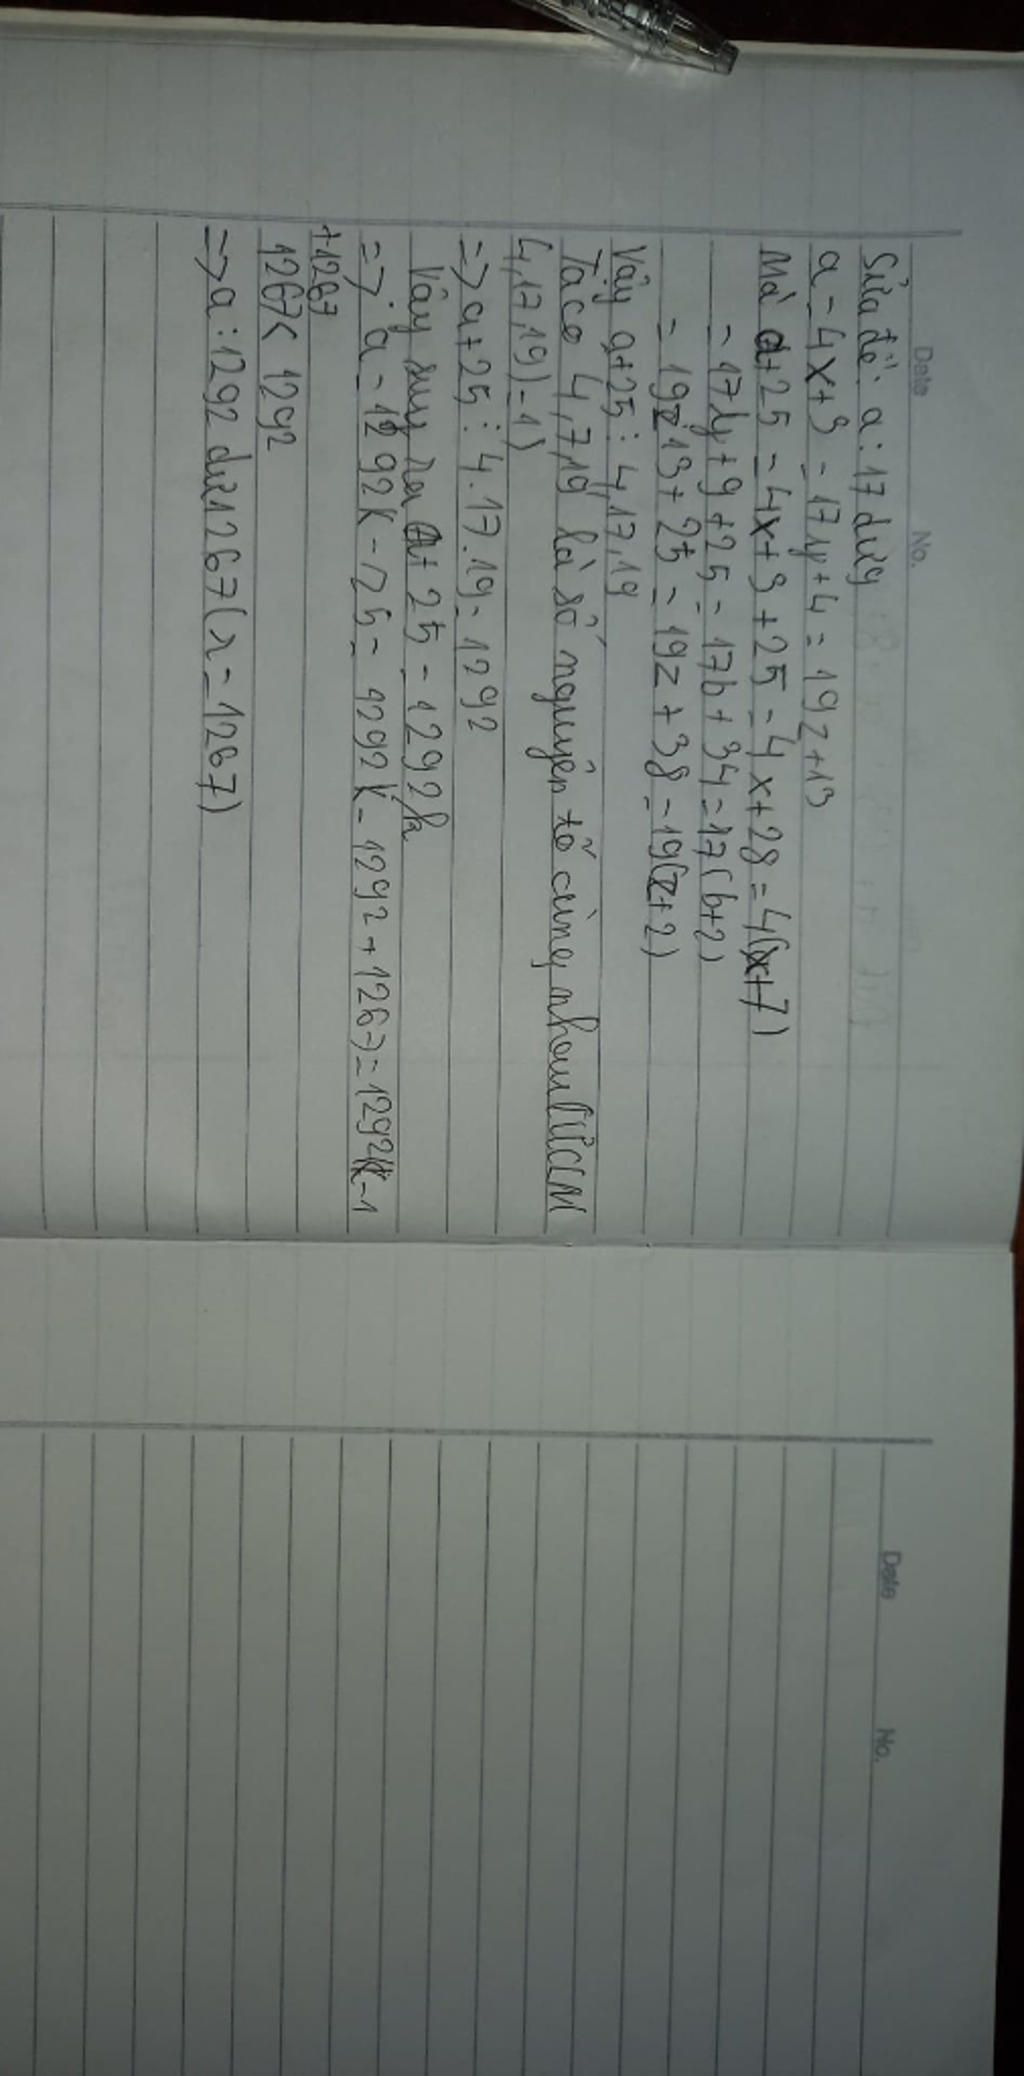 Date No.
Sửa đề: a : 17 dư 9
a = 4x + 3 = 17y + 4 = 19z + 13
Mà a + 25 = 4x + 3 + 25 = 4x + 28 = 4(x + 7)
= 17y + 9 + 25 = 17b + 34 = 17(b + 2)
= 19z 13 + 25 = 19z + 38 = 19(z + 2)
Vậy a + 25 ⋮ 4, 17, 19
Ta có 4, 7, 19 là số nguyên tố cùng nhau (ƯCLN
4, 17, 19) = 1)
=> a + 25 ⋮ 4. 17. 19 = 1292
Vậy suy ra a + 25 = 1292k
=> a = 1292k - 25 = 1292k - 1292 + 1267 = 1292(k - 1
+ 1267
1267 < 1292
=> a : 1292 dư 1267 (r = 1267)
Date No.